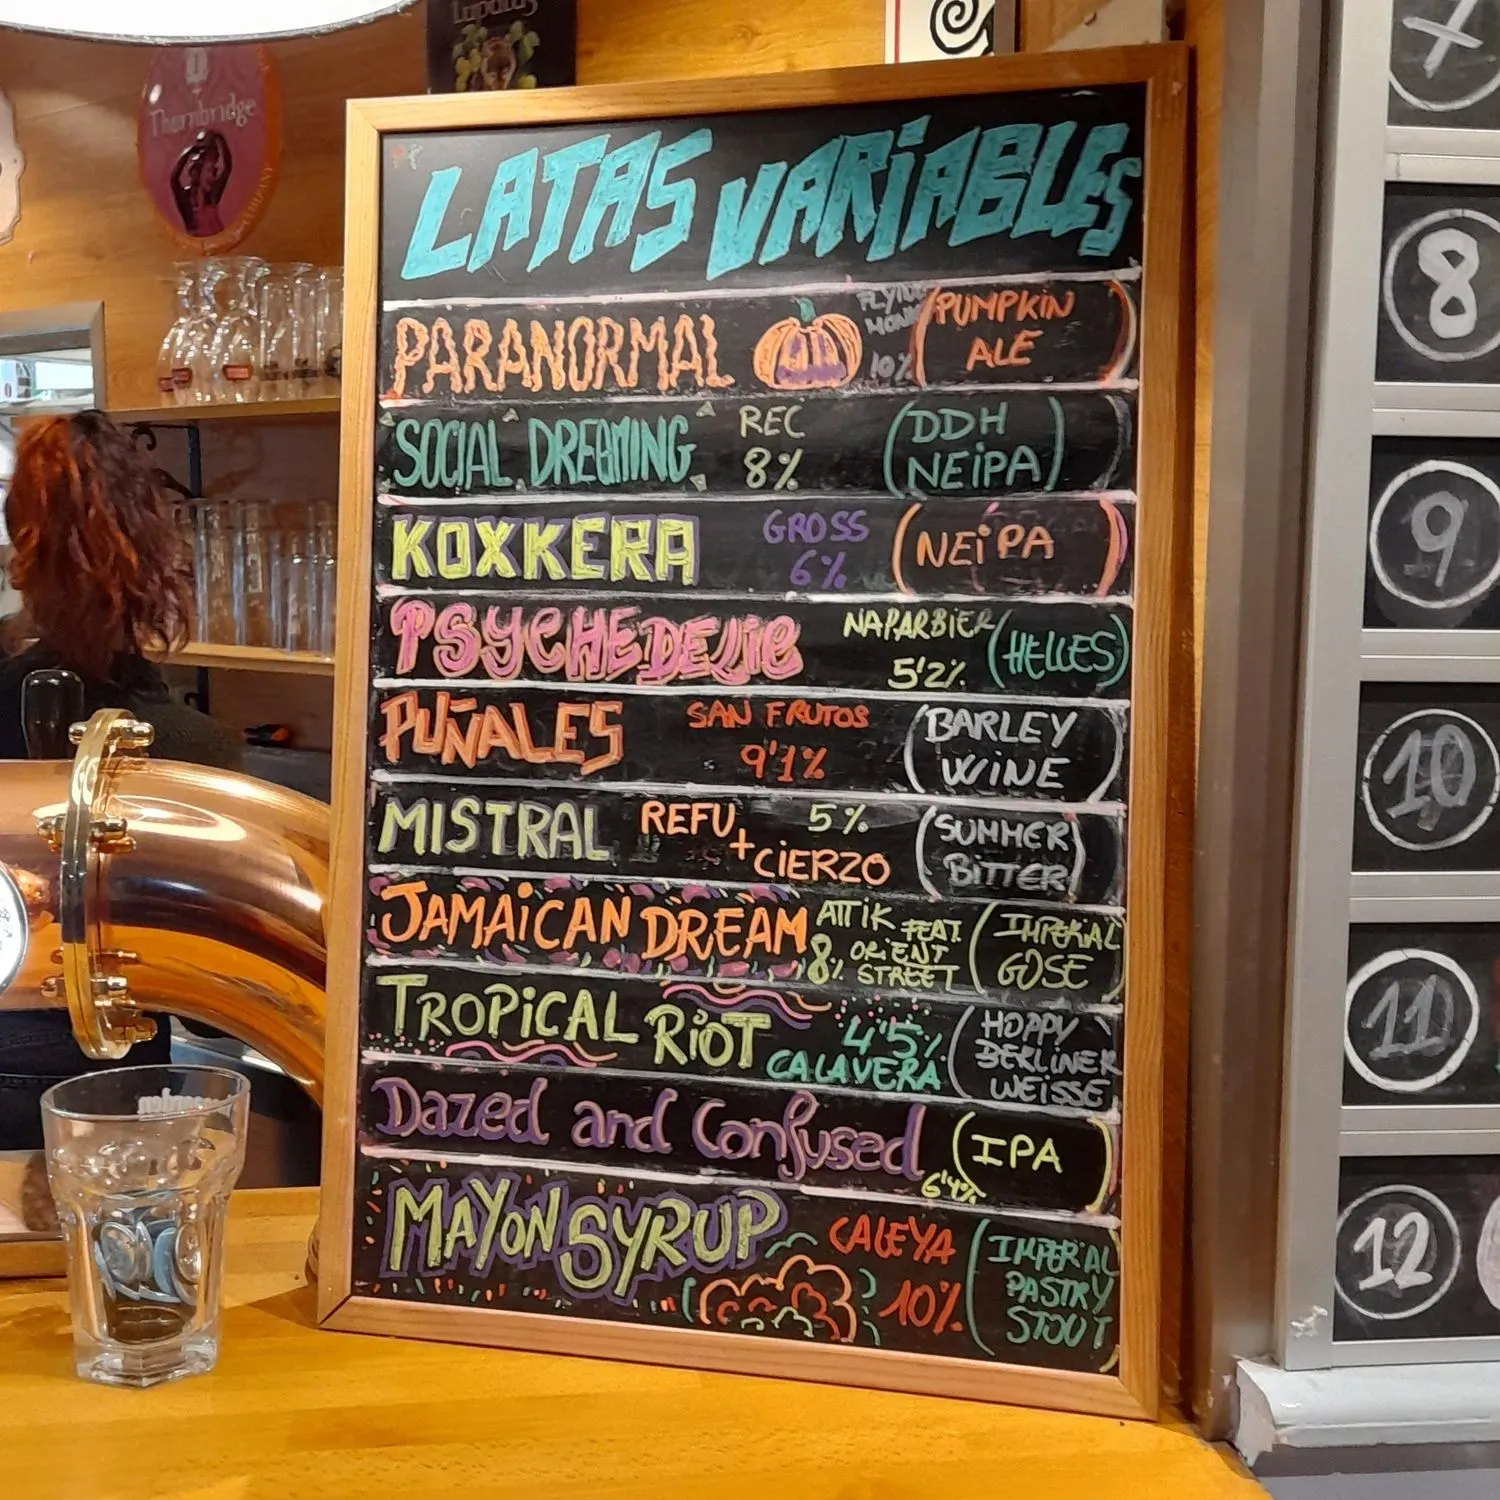 Thornbridge
LATAS VARIABLES
PARANORMAL
FLYING
10%
PUMPKIN
ALE
SOCIAL DREAMING
REC
8%
DDH
NEIPA
KOXKERA
GROSS
6%
NEIPA
PSYCHEDELIC
NAPARBIER
5'2%
HELLES
PUÑALES
SAN FRUTOS
9'1%
BARLEY
WINE
MISTRAL
REFU
+ CIERZO
5%
SUMMER
BITTER
JAMAICAN DREAM
ATTIK FEAT.
8% ORIENT
STREET
IMPERIAL
GOSE
TROPICAL RIOT
4'5%
CALAVERA
HOPPY
BERLINER
WEISSE
Dazed and Confused
6'4%
IPA
MAYON SYRUP
CALEYA
10%
IMPERIAL
PASTRY
STOUT
7
8
9
10
11
12